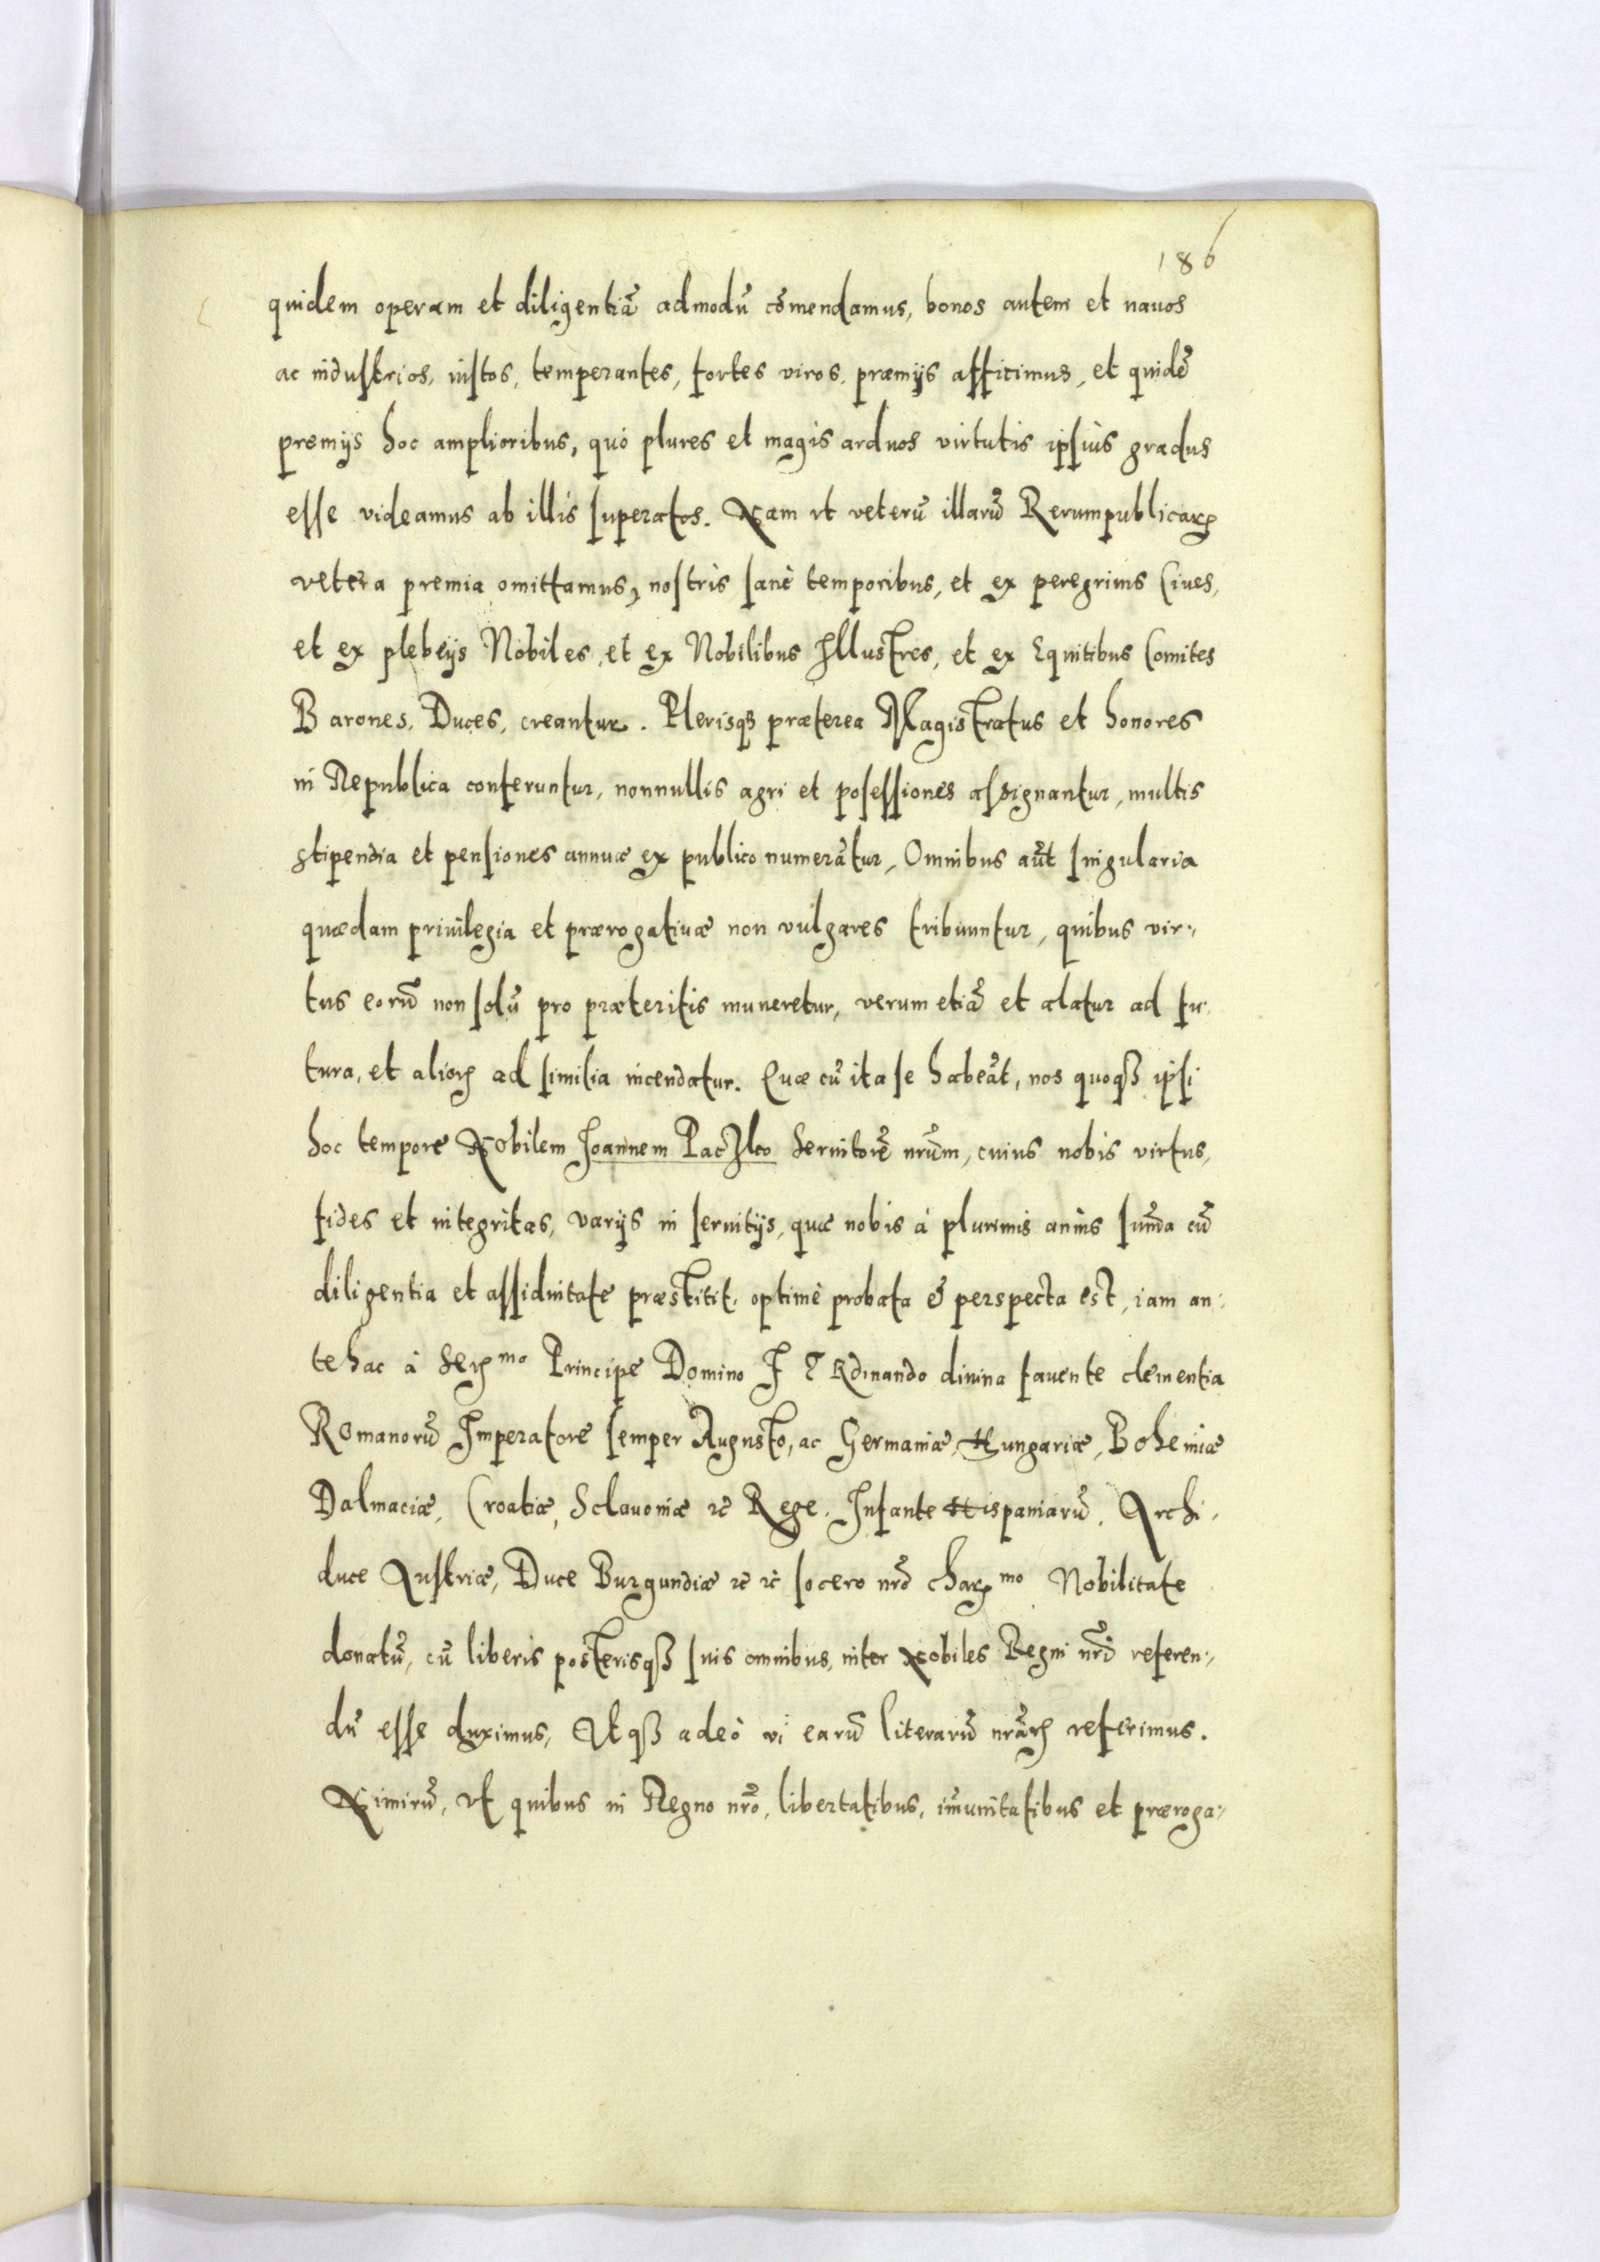 186
quidem operam et diligentiã admodũ cõmendamus, bonos autem et nauos
ac industrios, iustos, temperantes, fortes viros, præmijs afficimus, et quidẽ
premijs hoc amplioribus, quò plures et magis arduos virtutis ipsius gradus
esse videamus ab illis superatos. Nam vt veterũ illarũ Rerumpublicarꝝ
vetera premia omittamus, nostris sanè temporibus, et ex peregrinis Ciues,
et ex plebeijs Nobiles, et ex Nobilibus Illustres, et ex Equitibus Comites
Barones, Duces, creantur. Plerisqꝫ præterea Magistratus et honores
in Republica conferuntur, nonnullis agri et posessiones assignantur, multis
stipendia et pensiones annuæ ex publico numerãtur, Omnibus aũt singularia
quædam priuilegia et prærogatiuæ non vulgares tribuuntur, quibus vir-
tus eorũ non solũ pro præteritis muneretur, verum etiã et alatur ad fu-
tura, et aliorꝝ ad similia incendatur. Quæ cũ ita se habeãt, nos quoqꝫ ipsi
hoc tempore Nobilem Joannem Paczlco Seruitorẽ nr̃um, cuius nobis virtus,
fides et integritas, varijs in seruitijs, quæ nobis à plurimis annis sum̃a cũ
diligentia et assiduitate præstitit, optimè probata & perspecta est, iam an-
tehac à Serꝝmo Principe Domino Ferdinando diuina fauente clementia
Romanorũ Imperatore semper Augusto, ac Germaniæ, Hungariæ, Bohemiæ
Dalmaciæ, Croatiæ, Sclauoniæ ꝛc̃ Rege, Infante Hispaniarũ, Archi-
duce Austriæ, Duce Burgundiæ ꝛc̃ ꝛc̃ socero nr̃o charꝝmo Nobilitate
donatũ, cũ liberis posterisqꝫ suis omnibus, inter Nobiles Regni nr̃i referen-
dũ esse duximus, Atqꝫ adeò vi earũ literarũ nr̃arꝝ referimus.
Nimirũ, vt quibus in Regno nr̃o, libertatibus, im̃unitatibus et præroga-